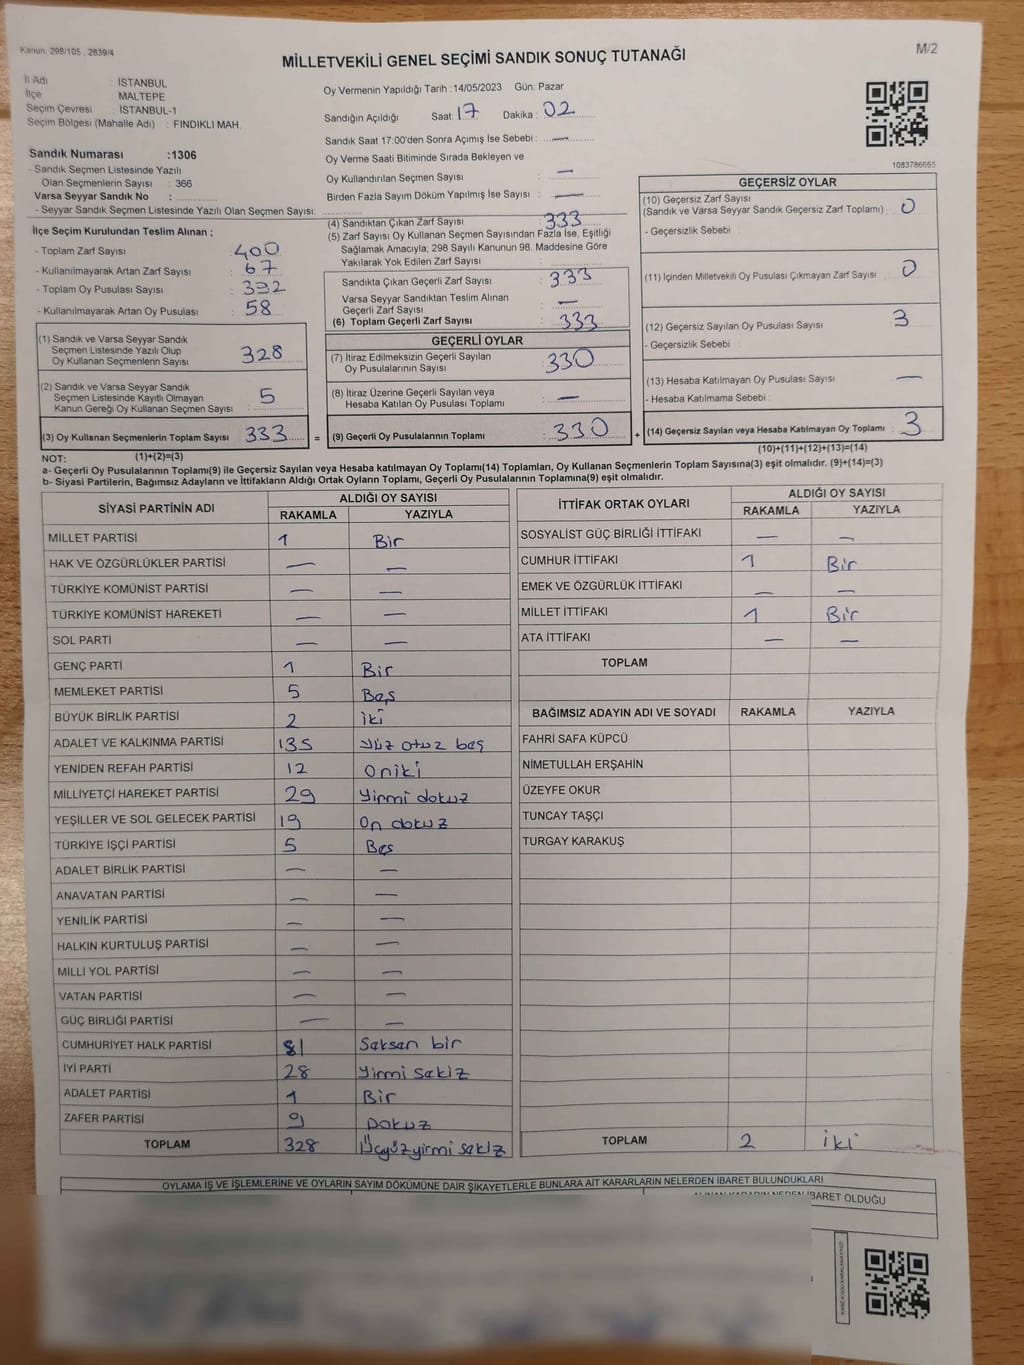 Kanun: 298/105 , 2839/4
M/2
MİLLETVEKİLİ GENEL SEÇİMİ SANDIK SONUÇ TUTANAĞI
İl Adı : İSTANBUL
İlçe : MALTEPE
Seçim Çevresi : İSTANBUL-1
Seçim Bölgesi (Mahalle Adı) : FINDIKLI MAH.
Sandık Numarası :1306
- Sandık Seçmen Listesinde Yazılı
Olan Seçmenlerin Sayısı : 366
Varsa Seyyar Sandık No :
- Seyyar Sandık Seçmen Listesinde Yazılı Olan Seçmen Sayısı:
İlçe Seçim Kurulundan Teslim Alınan ;
- Toplam Zarf Sayısı : 400
- Kullanılmayarak Artan Zarf Sayısı : 67
- Toplam Oy Pusulası Sayısı : 392
- Kullanılmayarak Artan Oy Pusulası : 58
(1) Sandık ve Varsa Seyyar Sandık
Seçmen Listesinde Yazılı Olup
Oy Kullanan Seçmenlerin Sayısı : 328
(2) Sandık ve Varsa Seyyar Sandık
Seçmen Listesinde Kayıtlı Olmayan
Kanun Gereği Oy Kullanan Seçmen Sayısı : 5
(3) Oy Kullanan Seçmenlerin Toplam Sayısı : 333
Oy Vermenin Yapıldığı Tarih :14/05/2023 Gün: Pazar
Sandığın Açıldığı Saat: 17 Dakika : 02
Sandık Saat 17:00'den Sonra Açımış İse Sebebi : —
Oy Verme Saati Bitiminde Sırada Bekleyen ve
Oy Kullandırılan Seçmen Sayısı : —
Birden Fazla Sayım Döküm Yapılmış İse Sayısı : —
(4) Sandıktan Çıkan Zarf Sayısı : 333
(5) Zarf Sayısı Oy Kullanan Seçmen Sayısından Fazla İse, Eşitliği
Sağlamak Amacıyla; 298 Sayılı Kanunun 98. Maddesine Göre
Yakılarak Yok Edilen Zarf Sayısı :
Sandıkta Çıkan Geçerli Zarf Sayısı : 333
Varsa Seyyar Sandıktan Teslim Alınan
Geçerli Zarf Sayısı : —
(6) Toplam Geçerli Zarf Sayısı : 333
GEÇERLİ OYLAR
(7) İtiraz Edilmeksizin Geçerli Sayılan
Oy Pusulalarının Sayısı : 330
(8) İtiraz Üzerine Geçerli Sayılan veya
Hesaba Katılan Oy Pusulası Toplamı : —
= (9) Geçerli Oy Pusulalarının Toplamı : 330
1083786665
GEÇERSİZ OYLAR
(10) Geçersiz Zarf Sayısı
(Sandık ve Varsa Seyyar Sandık Geçersiz Zarf Toplamı) : 0
- Geçersizlik Sebebi :
(11) İçinden Milletvekili Oy Pusulası Çıkmayan Zarf Sayısı : 0
(12) Geçersiz Sayılan Oy Pusulası Sayısı : 3
- Geçersizlik Sebebi :
(13) Hesaba Katılmayan Oy Pusulası Sayısı : —
- Hesaba Katılmama Sebebi :
+ (14) Geçersiz Sayılan veya Hesaba Katılmayan Oy Toplamı : 3
NOT: (1)+(2)=(3) (10)+(11)+(12)+(13)=(14)
a- Geçerli Oy Pusulalarının Toplamı(9) ile Geçersiz Sayılan veya Hesaba katılmayan Oy Toplamı(14) Toplamları, Oy Kullanan Seçmenlerin Toplam Sayısına(3) eşit olmalıdır. (9)+(14)=(3)
b- Siyasi Partilerin, Bağımsız Adayların ve İttifakların Aldığı Ortak Oyların Toplamı, Geçerli Oy Pusulalarının Toplamına(9) eşit olmalıdır.
SİYASİ PARTİNİN ADI ALDIĞI OY SAYISI
RAKAMLA YAZIYLA
MİLLET PARTİSİ 1 Bir
HAK VE ÖZGÜRLÜKLER PARTİSİ — —
TÜRKİYE KOMÜNİST PARTİSİ — —
TÜRKİYE KOMÜNİST HAREKETİ — —
SOL PARTİ — —
GENÇ PARTİ 1 Bir
MEMLEKET PARTİSİ 5 Beş
BÜYÜK BİRLİK PARTİSİ 2 iki
ADALET VE KALKINMA PARTİSİ 135 Yüz otuz beş
YENİDEN REFAH PARTİSİ 12 Oniki
MİLLİYETÇİ HAREKET PARTİSİ 29 Yirmi dokuz
YEŞİLLER VE SOL GELECEK PARTİSİ 19 On dokuz
TÜRKİYE İŞÇİ PARTİSİ 5 Beş
ADALET BİRLİK PARTİSİ — —
ANAVATAN PARTİSİ — —
YENİLİK PARTİSİ — —
HALKIN KURTULUŞ PARTİSİ — —
MİLLİ YOL PARTİSİ — —
VATAN PARTİSİ — —
GÜÇ BİRLİĞİ PARTİSİ — —
CUMHURİYET HALK PARTİSİ 81 Seksen bir
İYİ PARTİ 28 Yirmi sekiz
ADALET PARTİSİ 1 Bir
ZAFER PARTİSİ 9 Dokuz
TOPLAM 328 Üçyüzyirmi sekiz
İTTİFAK ORTAK OYLARI ALDIĞI OY SAYISI
RAKAMLA YAZIYLA
SOSYALİST GÜÇ BİRLİĞİ İTTİFAKI — —
CUMHUR İTTİFAKI 1 Bir
EMEK VE ÖZGÜRLÜK İTTİFAKI — —
MİLLET İTTİFAKI 1 Bir
ATA İTTİFAKI — —
TOPLAM
BAĞIMSIZ ADAYIN ADI VE SOYADI RAKAMLA YAZIYLA
FAHRİ SAFA KÜPCÜ
NİMETULLAH ERŞAHİN
ÜZEYFE OKUR
TUNCAY TAŞÇI
TURGAY KARAKUŞ
TOPLAM 2 iki
OYLAMA İŞ VE İŞLEMLERİNE VE OYLARIN SAYIM DÖKÜMÜNE DAİR ŞİKAYETLERLE BUNLARA AİT KARARLARIN NELERDEN İBARET BULUNDUKLARI
İBARET OLDUĞU